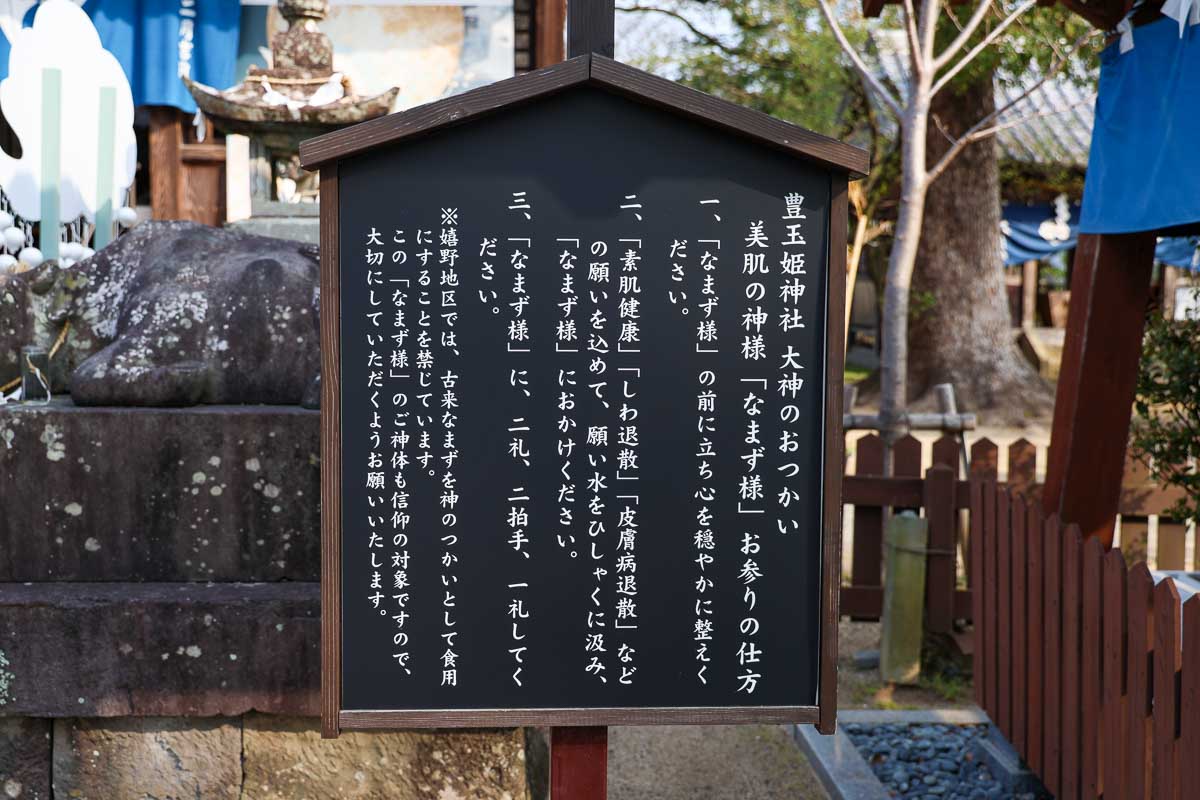 豊玉姫神社 大神のおつかい
美肌の神様「なまず様」お参りの仕方
一、「なまず様」の前に立ち心を穏やかに整えく
ださい。
二、「素肌健康」「しわ退散」「皮膚病退散」など
の願いを込めて、願い水をひしゃくに汲み、
「なまず様」におかけください。
三、「なまず様」に、二礼、二拍手、一礼してく
ださい。
※嬉野地区では、古来なまずを神のつかいとして食用
にすることを禁じています。
この「なまず様」のご神体も信仰の対象ですので、
大切にしていただくようお願いいたします。